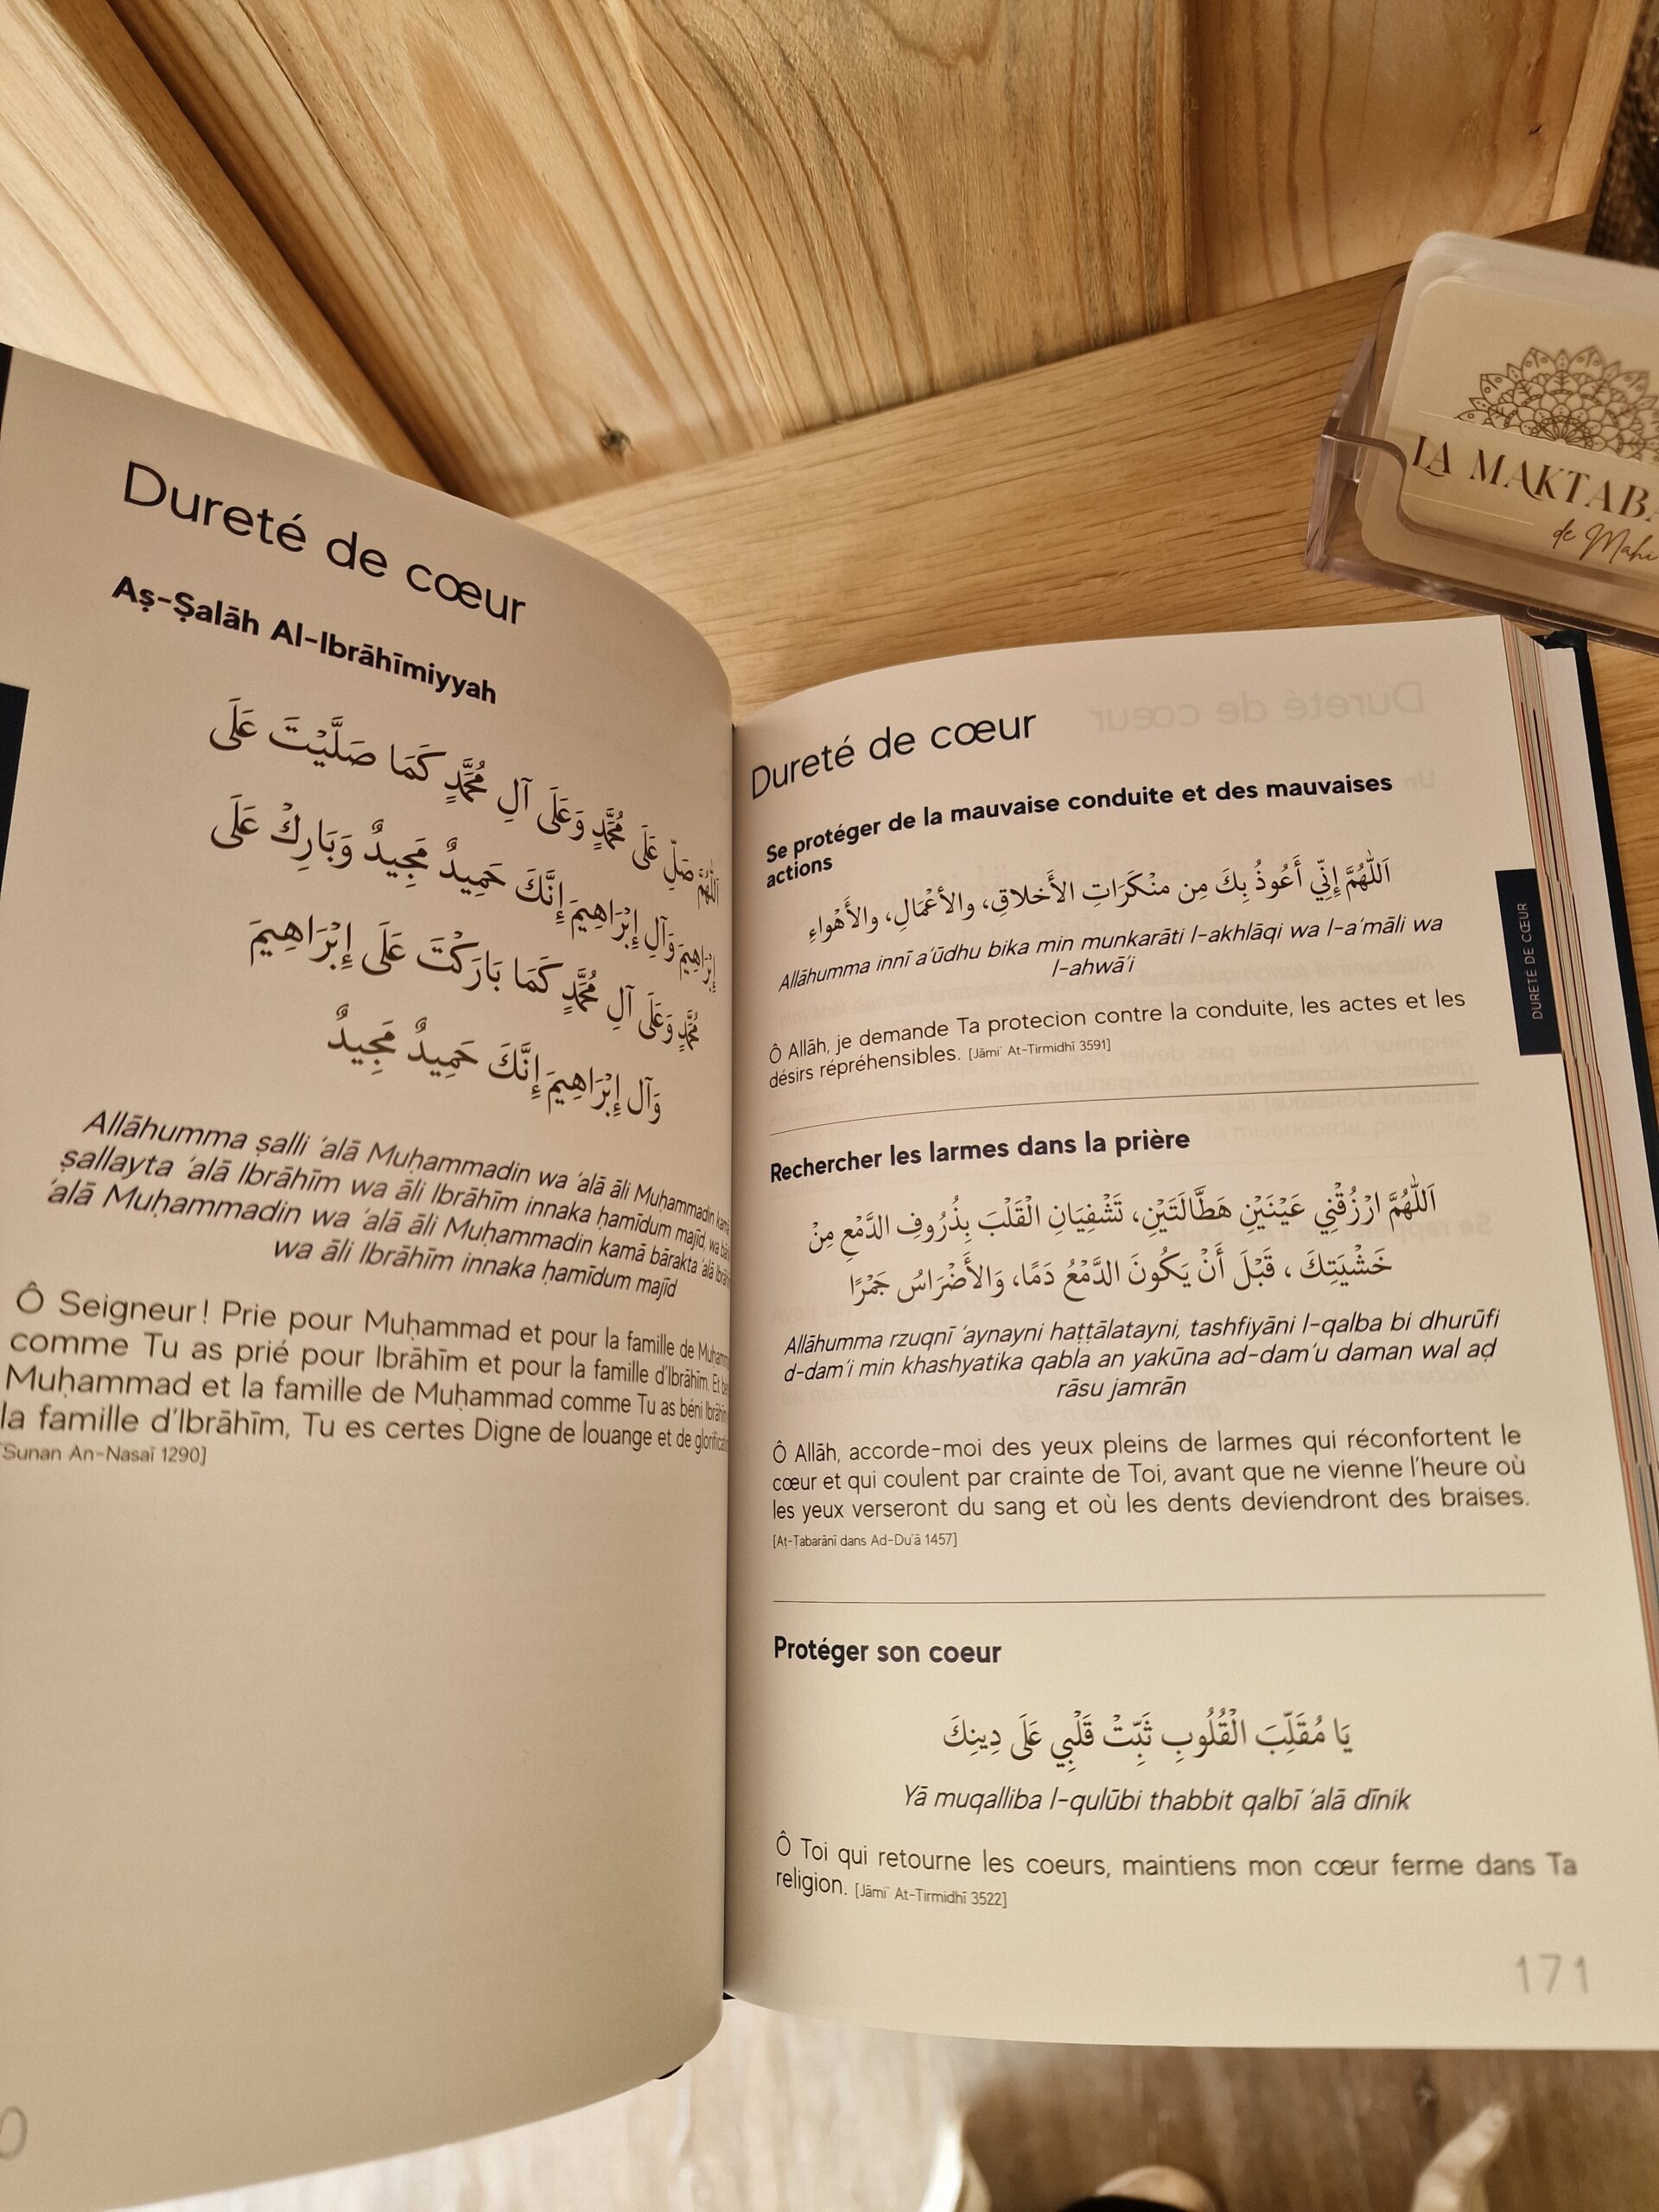 Dureté de cœur
Aṣ-Ṣalāh Al-Ibrāhīmiyyah
اَللّٰهُمَّ صَلِّ عَلَى مُحَمَّدٍ وَعَلَى آلِ مُحَمَّدٍ كَمَا صَلَّيْتَ عَلَى
إِبْرَاهِيمَ وَآلِ إِبْرَاهِيمَ إِنَّكَ حَمِيدٌ مَجِيدٌ وَبَارِكْ عَلَى
مُحَمَّدٍ وَعَلَى آلِ مُحَمَّدٍ كَمَا بَارَكْتَ عَلَى إِبْرَاهِيمَ
وَآلِ إِبْرَاهِيمَ إِنَّكَ حَمِيدٌ مَجِيدٌ
Allāhumma ṣalli ʿalā Muḥammadin wa ʿalā āli Muḥammadin kamā
ṣallayta ʿalā Ibrāhīm wa āli Ibrāhīm innaka ḥamīdum majīd, wa
ʿalā Muḥammadin wa ʿalā āli Muḥammadin kamā bārakta ʿalā
wa āli Ibrāhīm innaka ḥamīdum majīd
Ô Seigneur ! Prie pour Muḥammad et pour la famille de
comme Tu as prié pour Ibrāhīm et pour la famille d'Ibrāhīm. Et
Muḥammad et la famille de Muḥammad comme Tu as béni
la famille d'Ibrāhīm, Tu es certes Digne de louange et de
Sunan An-Nasaī 1290]
0
Dureté de cœur
Se protéger de la mauvaise conduite et des mauvaises
actions
اَللّٰهُمَّ إِنِّي أَعُوذُ بِكَ مِن منْكَرَاتِ الأَخلاقِ، والأعْمَالِ، والأَهْواءِ
Allāhumma innī aʿūdhu bika min munkarāti l-akhlāqi wa l-aʿmāli wa
l-ahwāʾi
Ô Allāh, je demande Ta protecion contre la conduite, les actes et les
désirs répréhensibles. [Jāmiʿ At-Tirmidhī 3591]
Rechercher les larmes dans la prière
اَللّٰهُمَّ ارْزُقْنِي عَيْنَيْنِ هَطَّالَتَيْنِ، تَشْفِيَانِ الْقَلْبَ بِذُرُوفِ الدَّمْعِ مِنْ
خَشْيَتِكَ ، قَبْلَ أَنْ يَكُونَ الدَّمْعُ دَمًا، وَالأَضْرَاسُ جَمْرًا
Allāhumma rzuqnī ʿaynayni haṭṭālatayni, tashfiyāni l-qalba bi dhurūfi
d-damʿi min khashyatika qabla an yakūna ad-damʿu daman wal aḍ
rāsu jamrān
Ô Allāh, accorde-moi des yeux pleins de larmes qui réconfortent le
cœur et qui coulent par crainte de Toi, avant que ne vienne l'heure où
les yeux verseront du sang et où les dents deviendront des braises.
[Aṭ-Ṭabarānī dans Ad-Duʿā 1457]
Protéger son coeur
يَا مُقَلِّبَ الْقُلُوبِ ثَبِّتْ قَلْبِي عَلَى دِينِكَ
Yā muqalliba l-qulūbi thabbit qalbī ʿalā dīnik
Ô Toi qui retourne les coeurs, maintiens mon cœur ferme dans Ta
religion. [Jāmiʿ At-Tirmidhī 3522]
171
DURETÉ DE CŒUR
LA MAKTABA
de Mahi